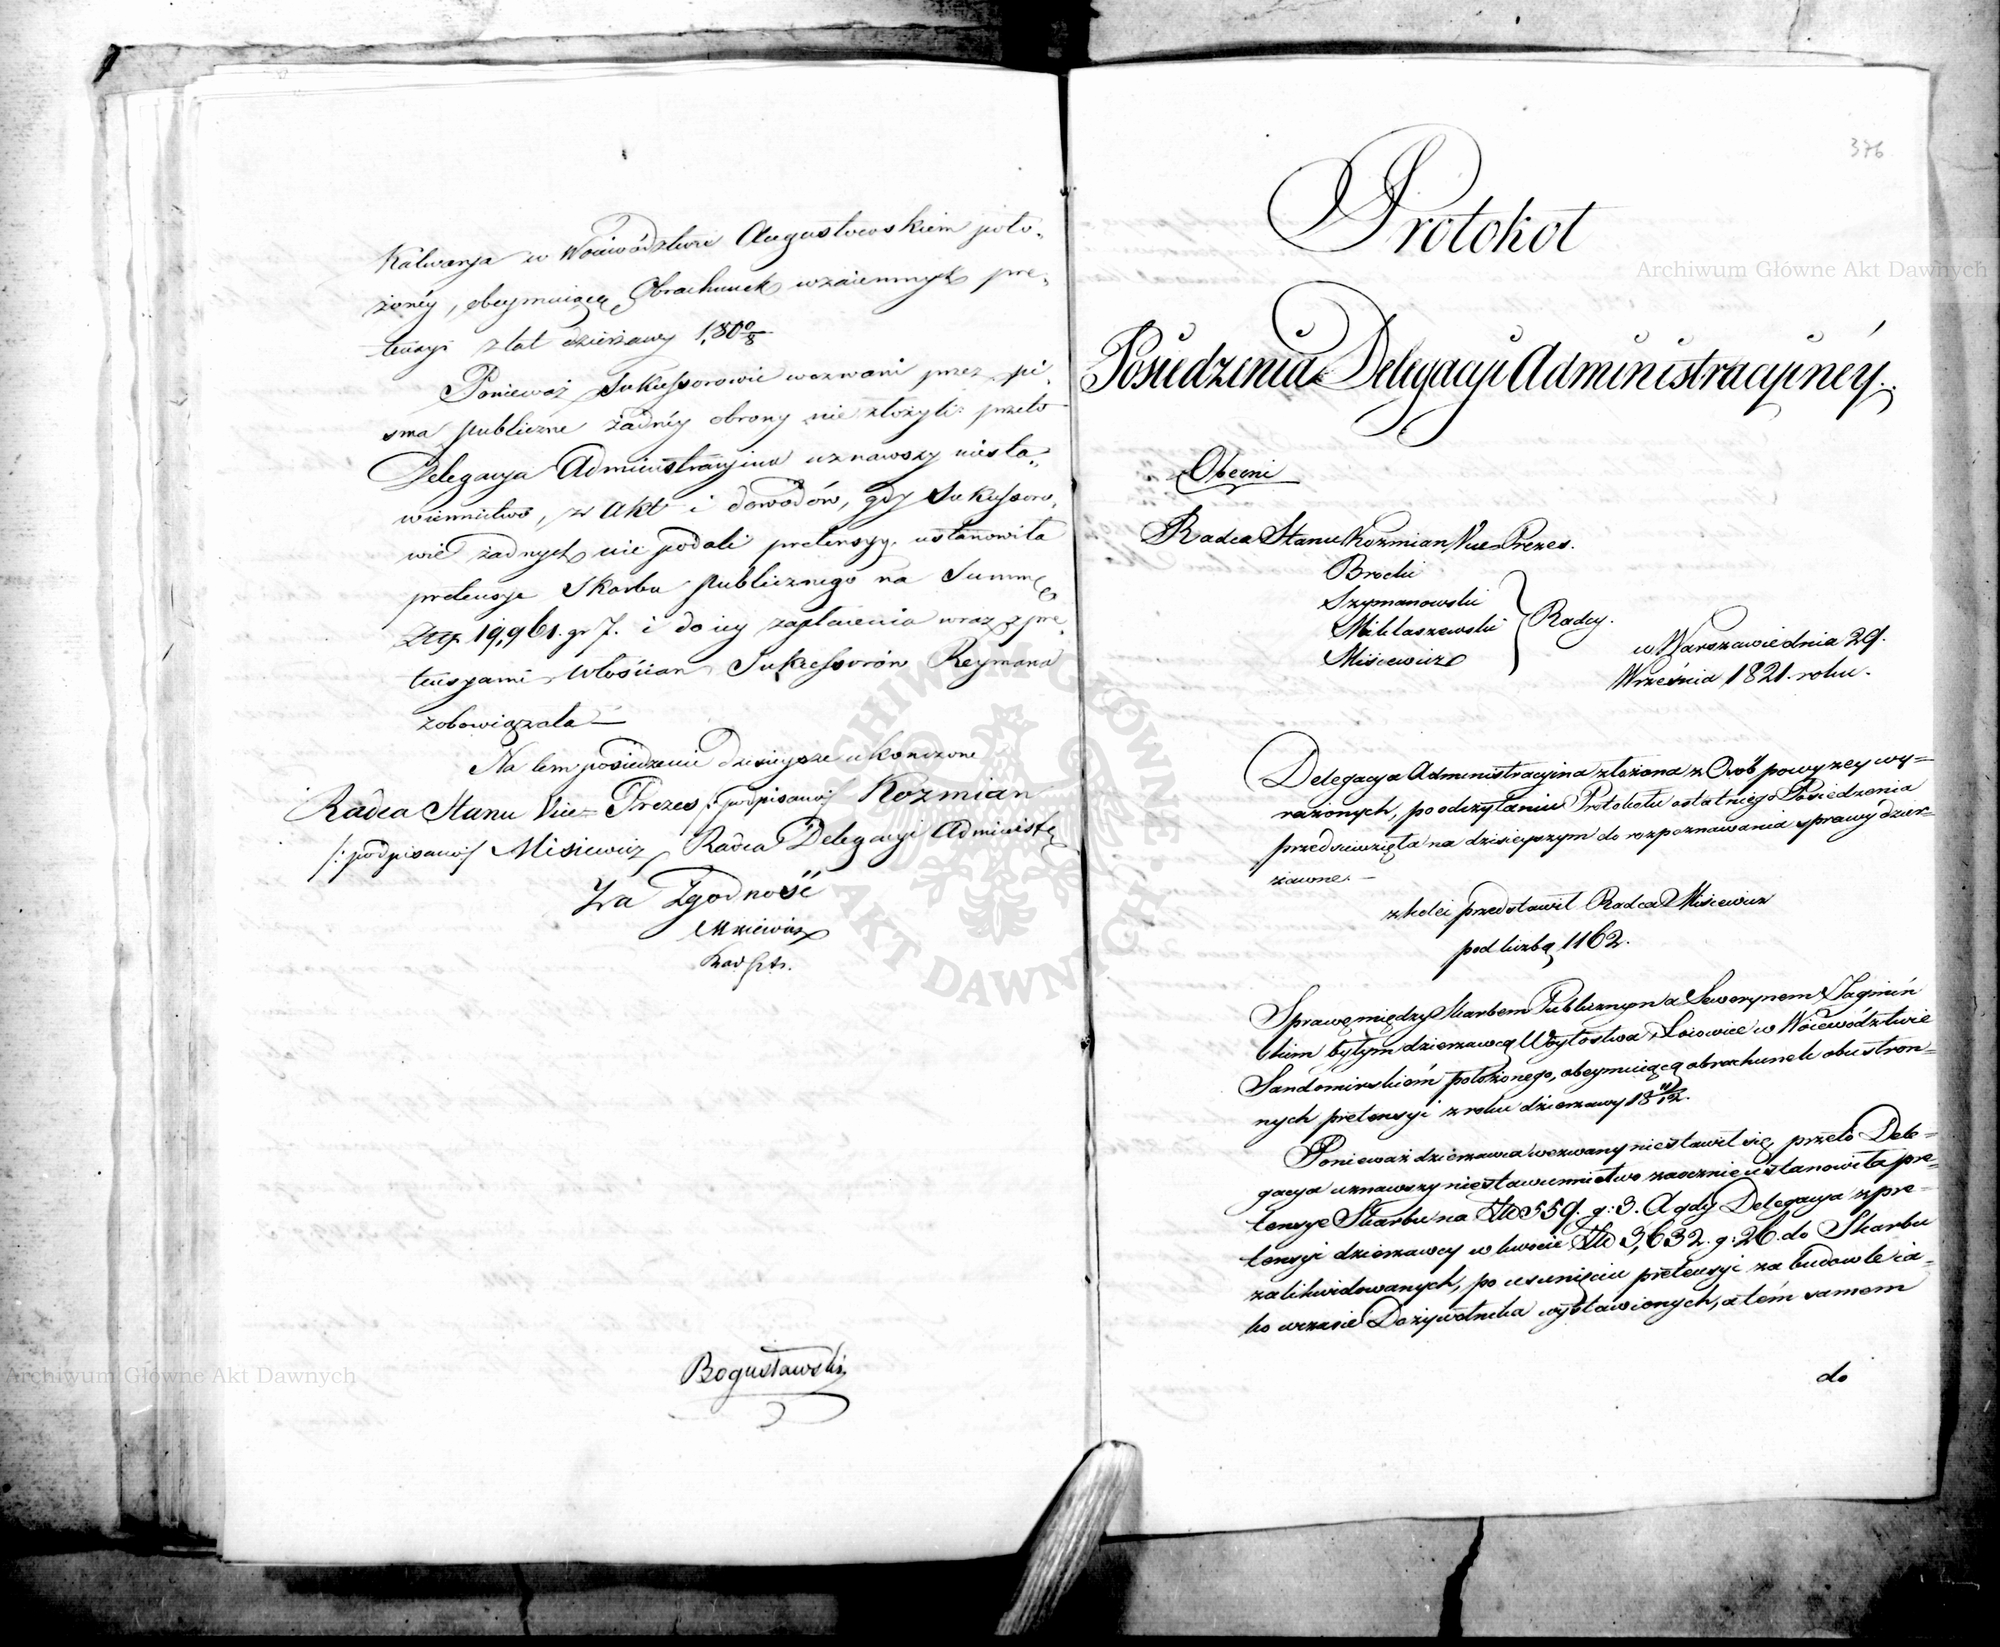 Kalwarya w Woiewództwie Augustowskiem poło„
żonéy, obeymuiącą Obrachunek wzaiemnych pre„
tensyi z lat dzierżawy 180
Ponieważ Sukcessorowie wezwani przez pi„
sma publiczne żadnéy obrony nie złożyli: przeto
Delegacya Administracyina uznawszy niesta„
wiennictwo, z Akt i dowodów, gdy Sukcessoro„
wie żadnych nie podali pretensyy, ustanowiła
pretensye Skarbu publicznego na Summę
Złtp. 19,961. gr 7. i do iey zapłacenia wraz z pre„
tensyami Włościan Sukcessorów Reymana
zobowiązała —
Na tem posiedzenie dzisieysze ukończone
Radca Stanu Vice-Prezes /: podpisano/ Kozmian
/: podpisano/ Misiewicz Radca Delegacyi Administ:
Za Zgodność
Misiewicz
Bogusławski
376
Protokół
Posiedzenia Delegacyi Administracyinéy.
Obecni
Radca Stanu Kozmian Vice-Prezes.
Brocki
Szymanowski
Miklaszewski
Misiewicz
Radcy.
w Warszawie dnia 29.
Września 1821. roku.
Delegacya Administracyina złożona z Osób powyzey wy=
rażonych, po odczytaniu Protokułu ostatniego Posiedzenia
przedsięwzięła na dzisieyszym do rozpoznawania sprawy dzier=
żawne. —
z kolei przedstawił Radca Misiewicz
pod liczbą 1162.
Sprawę między Skarbem Publicznym a Sewerynem Jagniń
skim byłym dzierzawcą Woytostwa w Woiewództwie
Sandomirskiém położonego, obeymuiącą obrachunek obustron=
nych pretensyi z roku dzierzawy 18 11/12.
Ponieważ dzierzawca wezwany niestawił się, przeto Dele=
gacya uznawszy niestawiennictwo zaocznie ustanowiła pre=
tensye Skarbu na Złł 559. g: 3. A gdy Delegacya z pre=
tensyi dzierzawcy w kwocie Złł 3,632. g: 26. do Skarbu
zalikwidowanych, po usunięciu pretensyi za budowle ia=
ko w czasie Dożywotnika wystawionych, a tém samem
do
Archiwum Główne Akt Dawnych
Archiwum Główne Akt Dawnych
ARCHIWUM GŁÓWNE AKT DAWNYCH